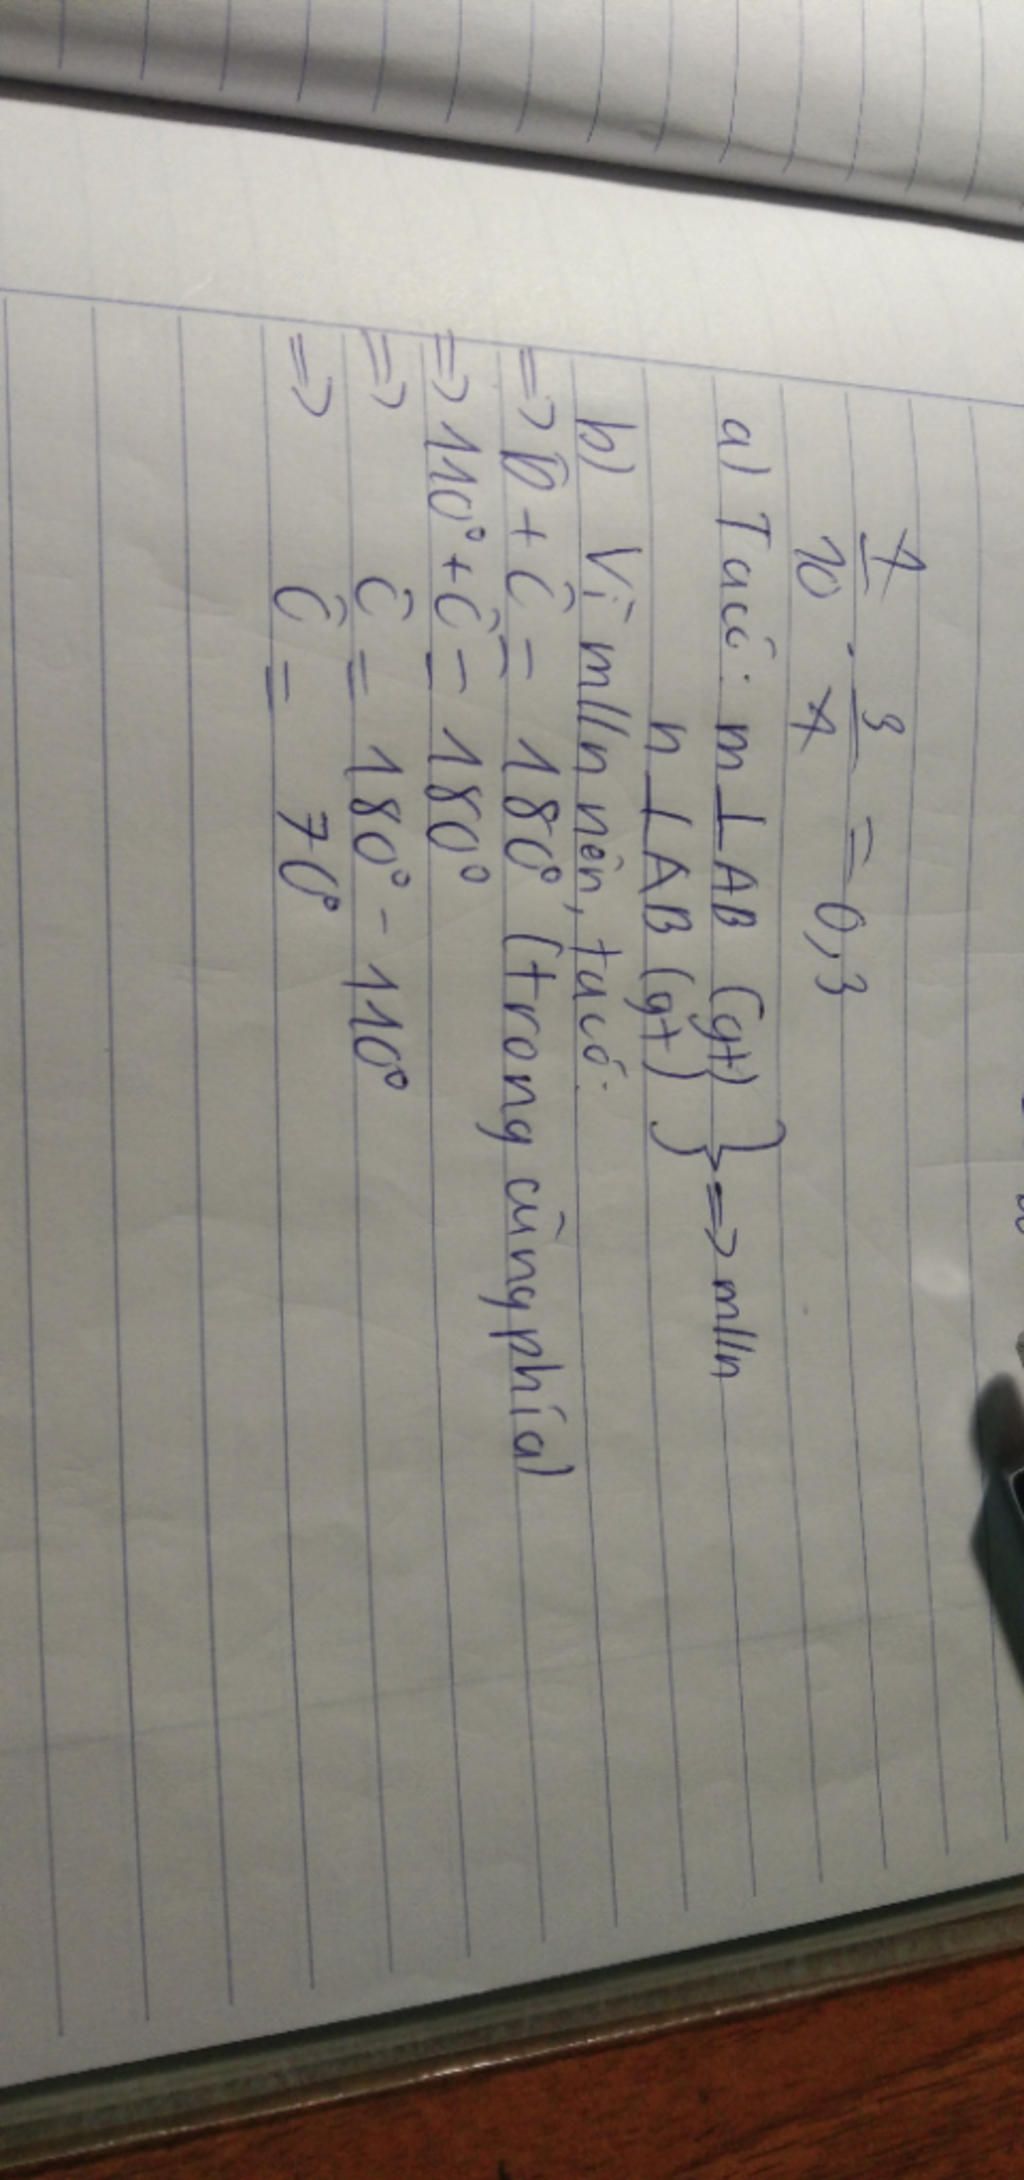 7/10 . 3/7 = 0,3
a) Ta có: m ⊥ AB (gt) } => m//n
n ⊥ AB (gt)
b) Vì m//n nên, ta có:
=> D̂ + Ĉ = 180° (trong cùng phía)
=> 110° + Ĉ = 180°
=> Ĉ = 180° - 110°
=> Ĉ = 70°